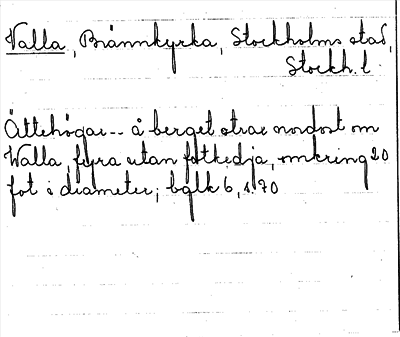 Valla, Brännkyrka, Stockholms stad,
Stockh. l.
Ättehögar -- å berget strax nordost om
Walla, fyra utan fotkedja, omkring 20
fot i diameter; bglk 6, s. 70